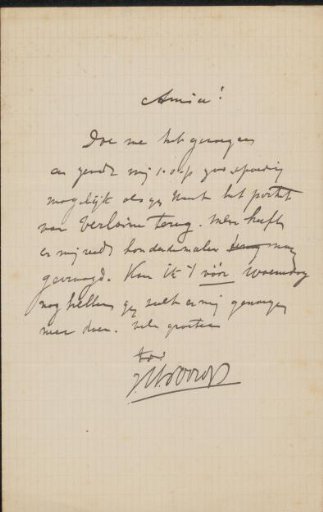 Amice!
Doe me het genoegen
en zendt mij s.v.p. zoo spoedig
mogelijk als gij kunt het portret
van Verlaine terug. Men heeft
er mij reeds honderdmaler naar
gevraagd. Kan ik 't vóór Woensdag
nog hebben gij zult er mij genoegen
mee doen. Vele groeten
JThToorop